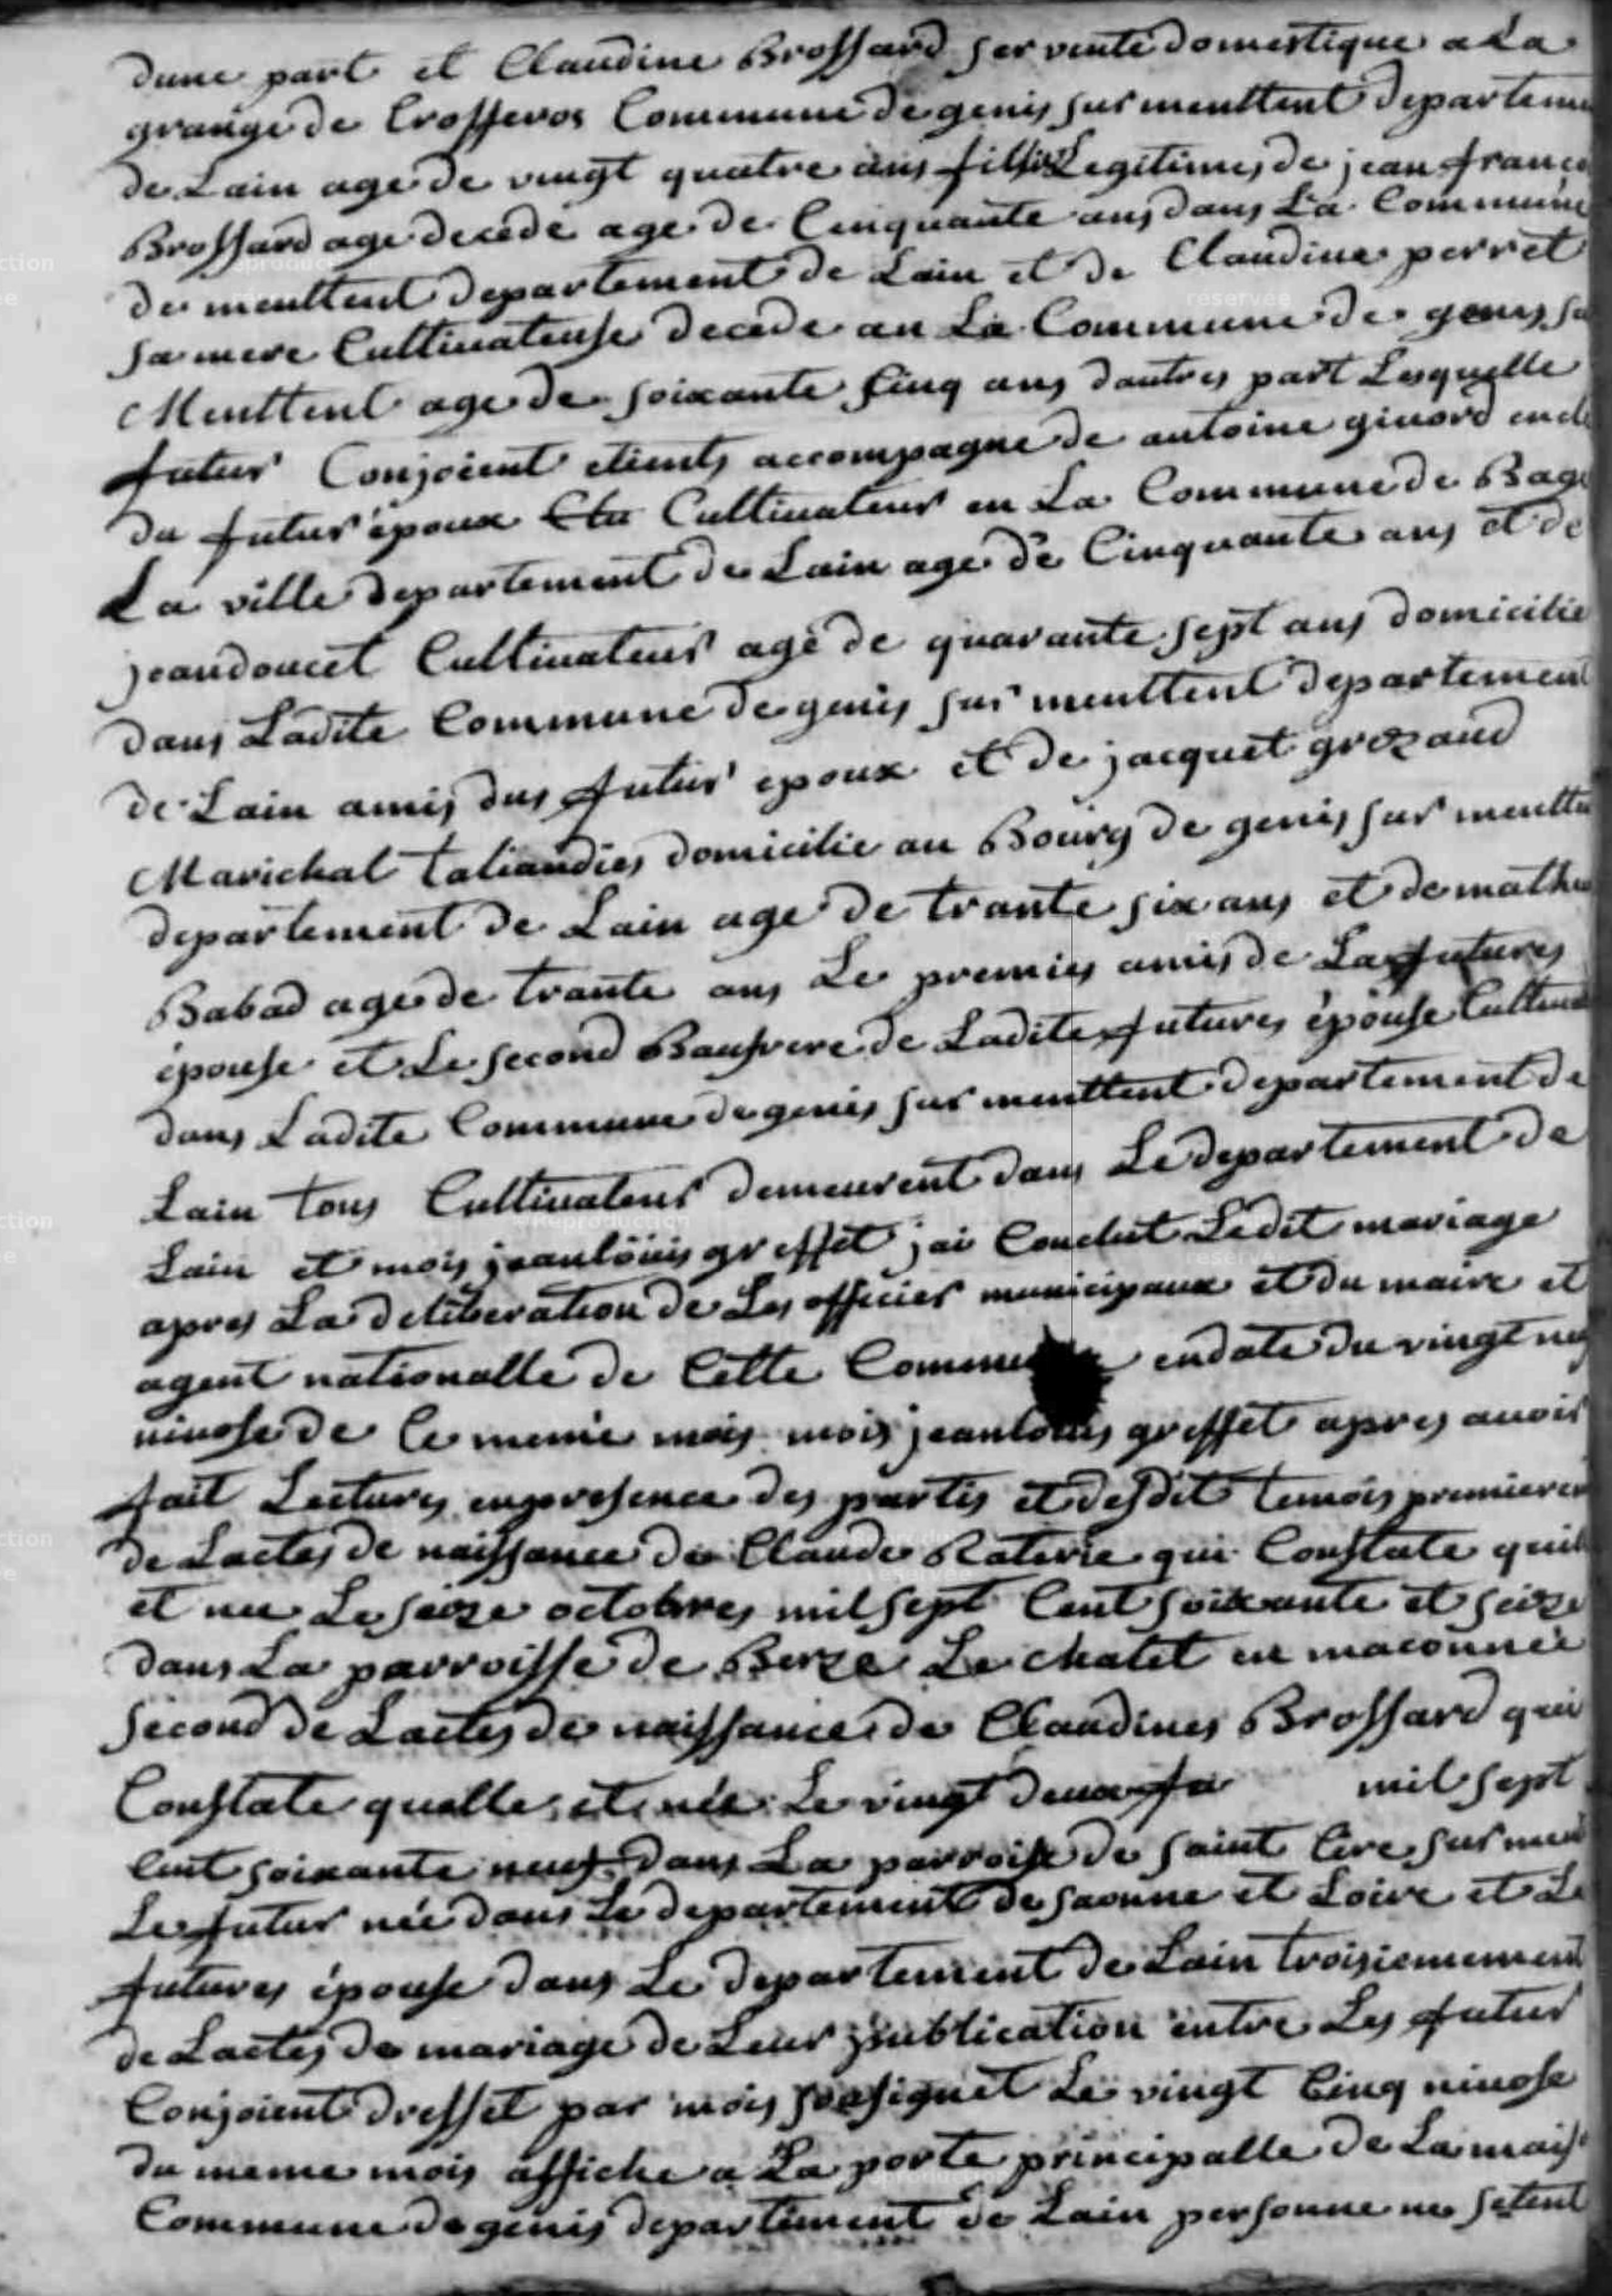 dune part et Claudine Brossard servente domestique a La
grange de Crosseros Commune de genis sur menttent departeme
de Lain age de vingt quatre ans fille Legitimes de jean franco
Brossard age decede age de Cinquante ans dans La Commune
de menttent departement de Lain et de Claudine perret
sa mere Cultivateuse decede an La Commune de genis su
Menttent age de soixante sinq ans dautres part Lesquelle
futur Conjoient etients accompagne de antoine ginord
du futur époux Cultivateur en La Commune de Bage
La ville departement de Lain age de Cinquante ans et de
jeandoucet Cultivateur agé de quarante sept ans domicilie
dans Ladite Commune de genis sur menttent departement
de Lain amis dus futur epoux et de jacquet grozaud
Marichal taliandier domicilie au Bourg de genis sur mentte
departement de Lain age de trante six ans et de mathe
Babad age de trante ans Le premier amis de La futures
épouse et Le second Baufrere de Ladite futures épouse Culti
dans Ladite Commune de genis sur menttent departement de
Lain tous Cultivateur demeurent dans Le departement de
Lain et mois jeanlouis greffet jai Conclut Ledit mariage
apres La deliberation de Les officier municipaux et du maire et
agent nationalle de Cette Comm endate du vingt
nivose de Ce meme mois mois jeanlouis greffet apres avoir
fait Lectures enpresence des partis et desdit temois premierem
de Lactes de naissance de Claude Raterie qui Constate quil
et ne Le seize octobres mil sept Cent soixante et seize
dans La parroisse de Berze Le chatet en maconnée
second de Lactes de naissance de Claudines Brossard qui
Constate qualle et née Le vingt deux fe mil sept
Cent soixante neuf dans La parroisse de saint Cire sur men
Le futur née dans Le departement de saonne et Loire et La
futures épouse dans Le departement de Lain troisiememment
de Lactes de mariage de Leur publication entre Les futur
Conjoient dresset par mois sousignet Le vingt Cinq nivose
du meme mois affiche a La porte principalle de La mais
Commune de genis departement de Lain personne ne setent